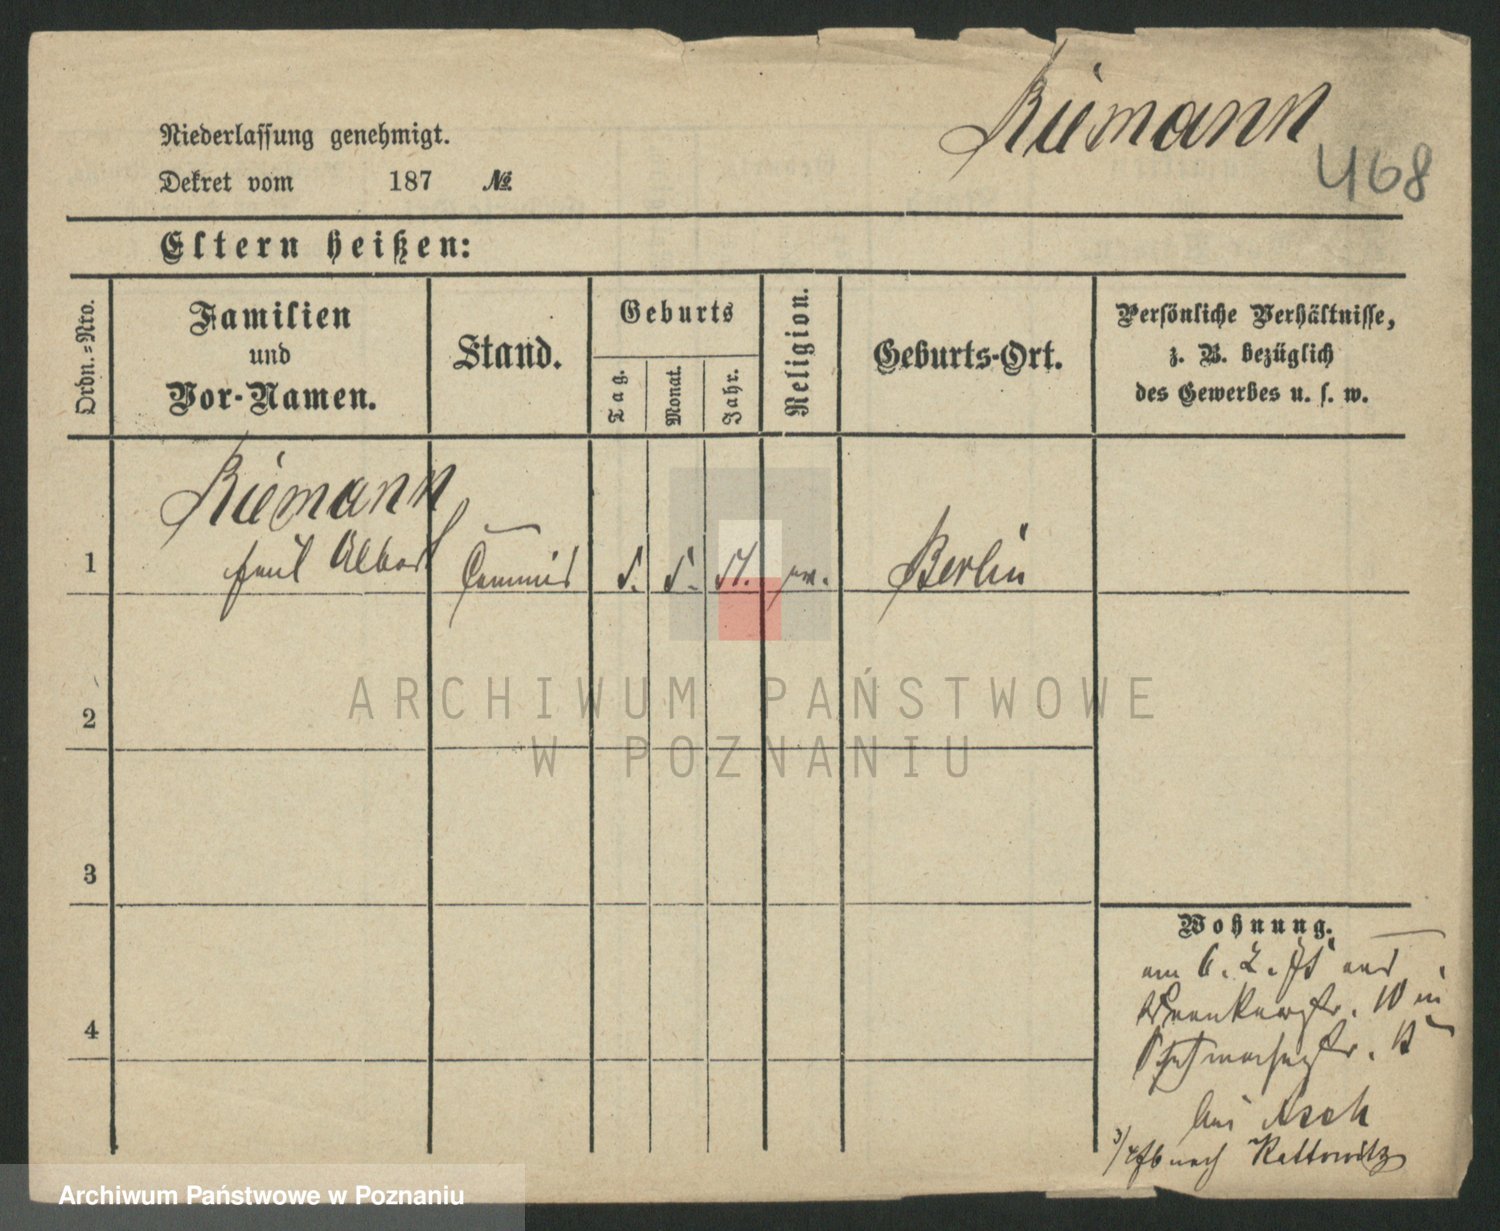 Riemann
468
Niederlassung genehmigt.
Dekret vom 187 №
Eltern heißen:
Ordn.-Nro.
Familien
und
Vor-Namen.
Stand.
Geburts
Tag.
Monat.
Jahr.
Religion.
Geburts-Ort.
Persönliche Verhältnisse,
z. B. bezüglich
des Gewerbes u. s. w.
Riemann
1 Emil Albert Commis 5. 5. 51. ev. Berlin
2
3
4
Wohnung.
am 6. 2. 75 aus
10 in
bei Asch
nach Kattowitz
ARCHIWUM PAŃSTWOWE
W POZNANIU
Archiwum Państwowe w Poznaniu